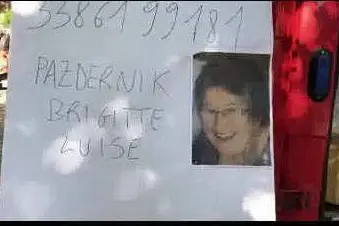 3386199181
PAZDERNIK
BRIGITTE
LUISE